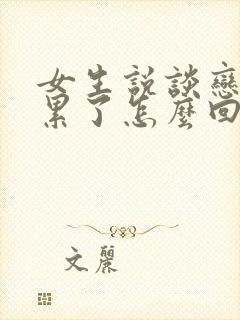 女生說談戀
累了怎麼回
文麗